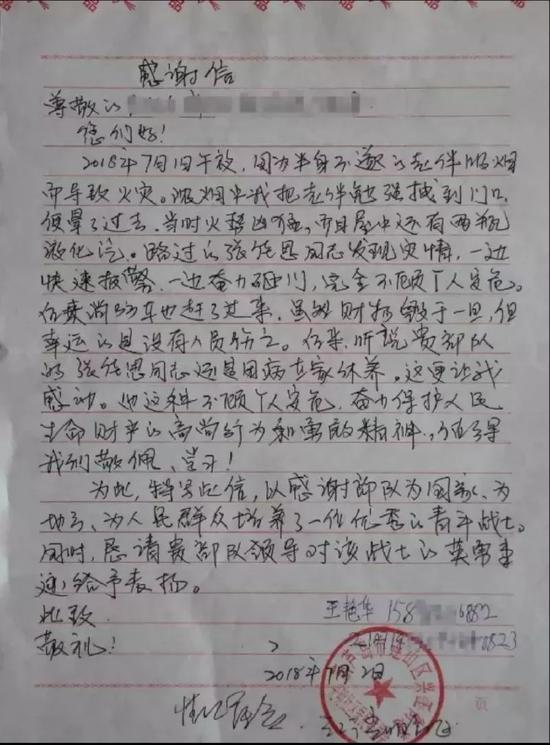 感谢信
尊敬的
您们好!
2018年7月1日午夜,因为半身不遂的老伴吸烟
而导致火灾。浓烟中我把老伴勉强拽到门口
便晕了过去。当时火势凶猛,而且屋中还有两瓶
液化汽。路过的张佳思同志发现灾情,一边
快速报警,一边奋力砸门,完全不顾个人安危。
后来消防车也赶了过来。虽然财物毁于一旦,但
幸运的是没有人员伤亡。后来,听说贵部队
的张佳思同志还是因病在家休养。这更让我
感动。他这种不顾个人安危,奋力保护人民
生命财产的高尚行为和勇敢精神,值得
我们敬佩、学习!
为此,特写此信,以感谢部队为国家、为
地方、为人民群众培养了一位优秀的青年战士。
同时,恳请贵部队领导对该战士的英勇事
迹给予表扬。
此致
王艳华 158 6882
敬礼!
0823
2018年7月2日
情况属实